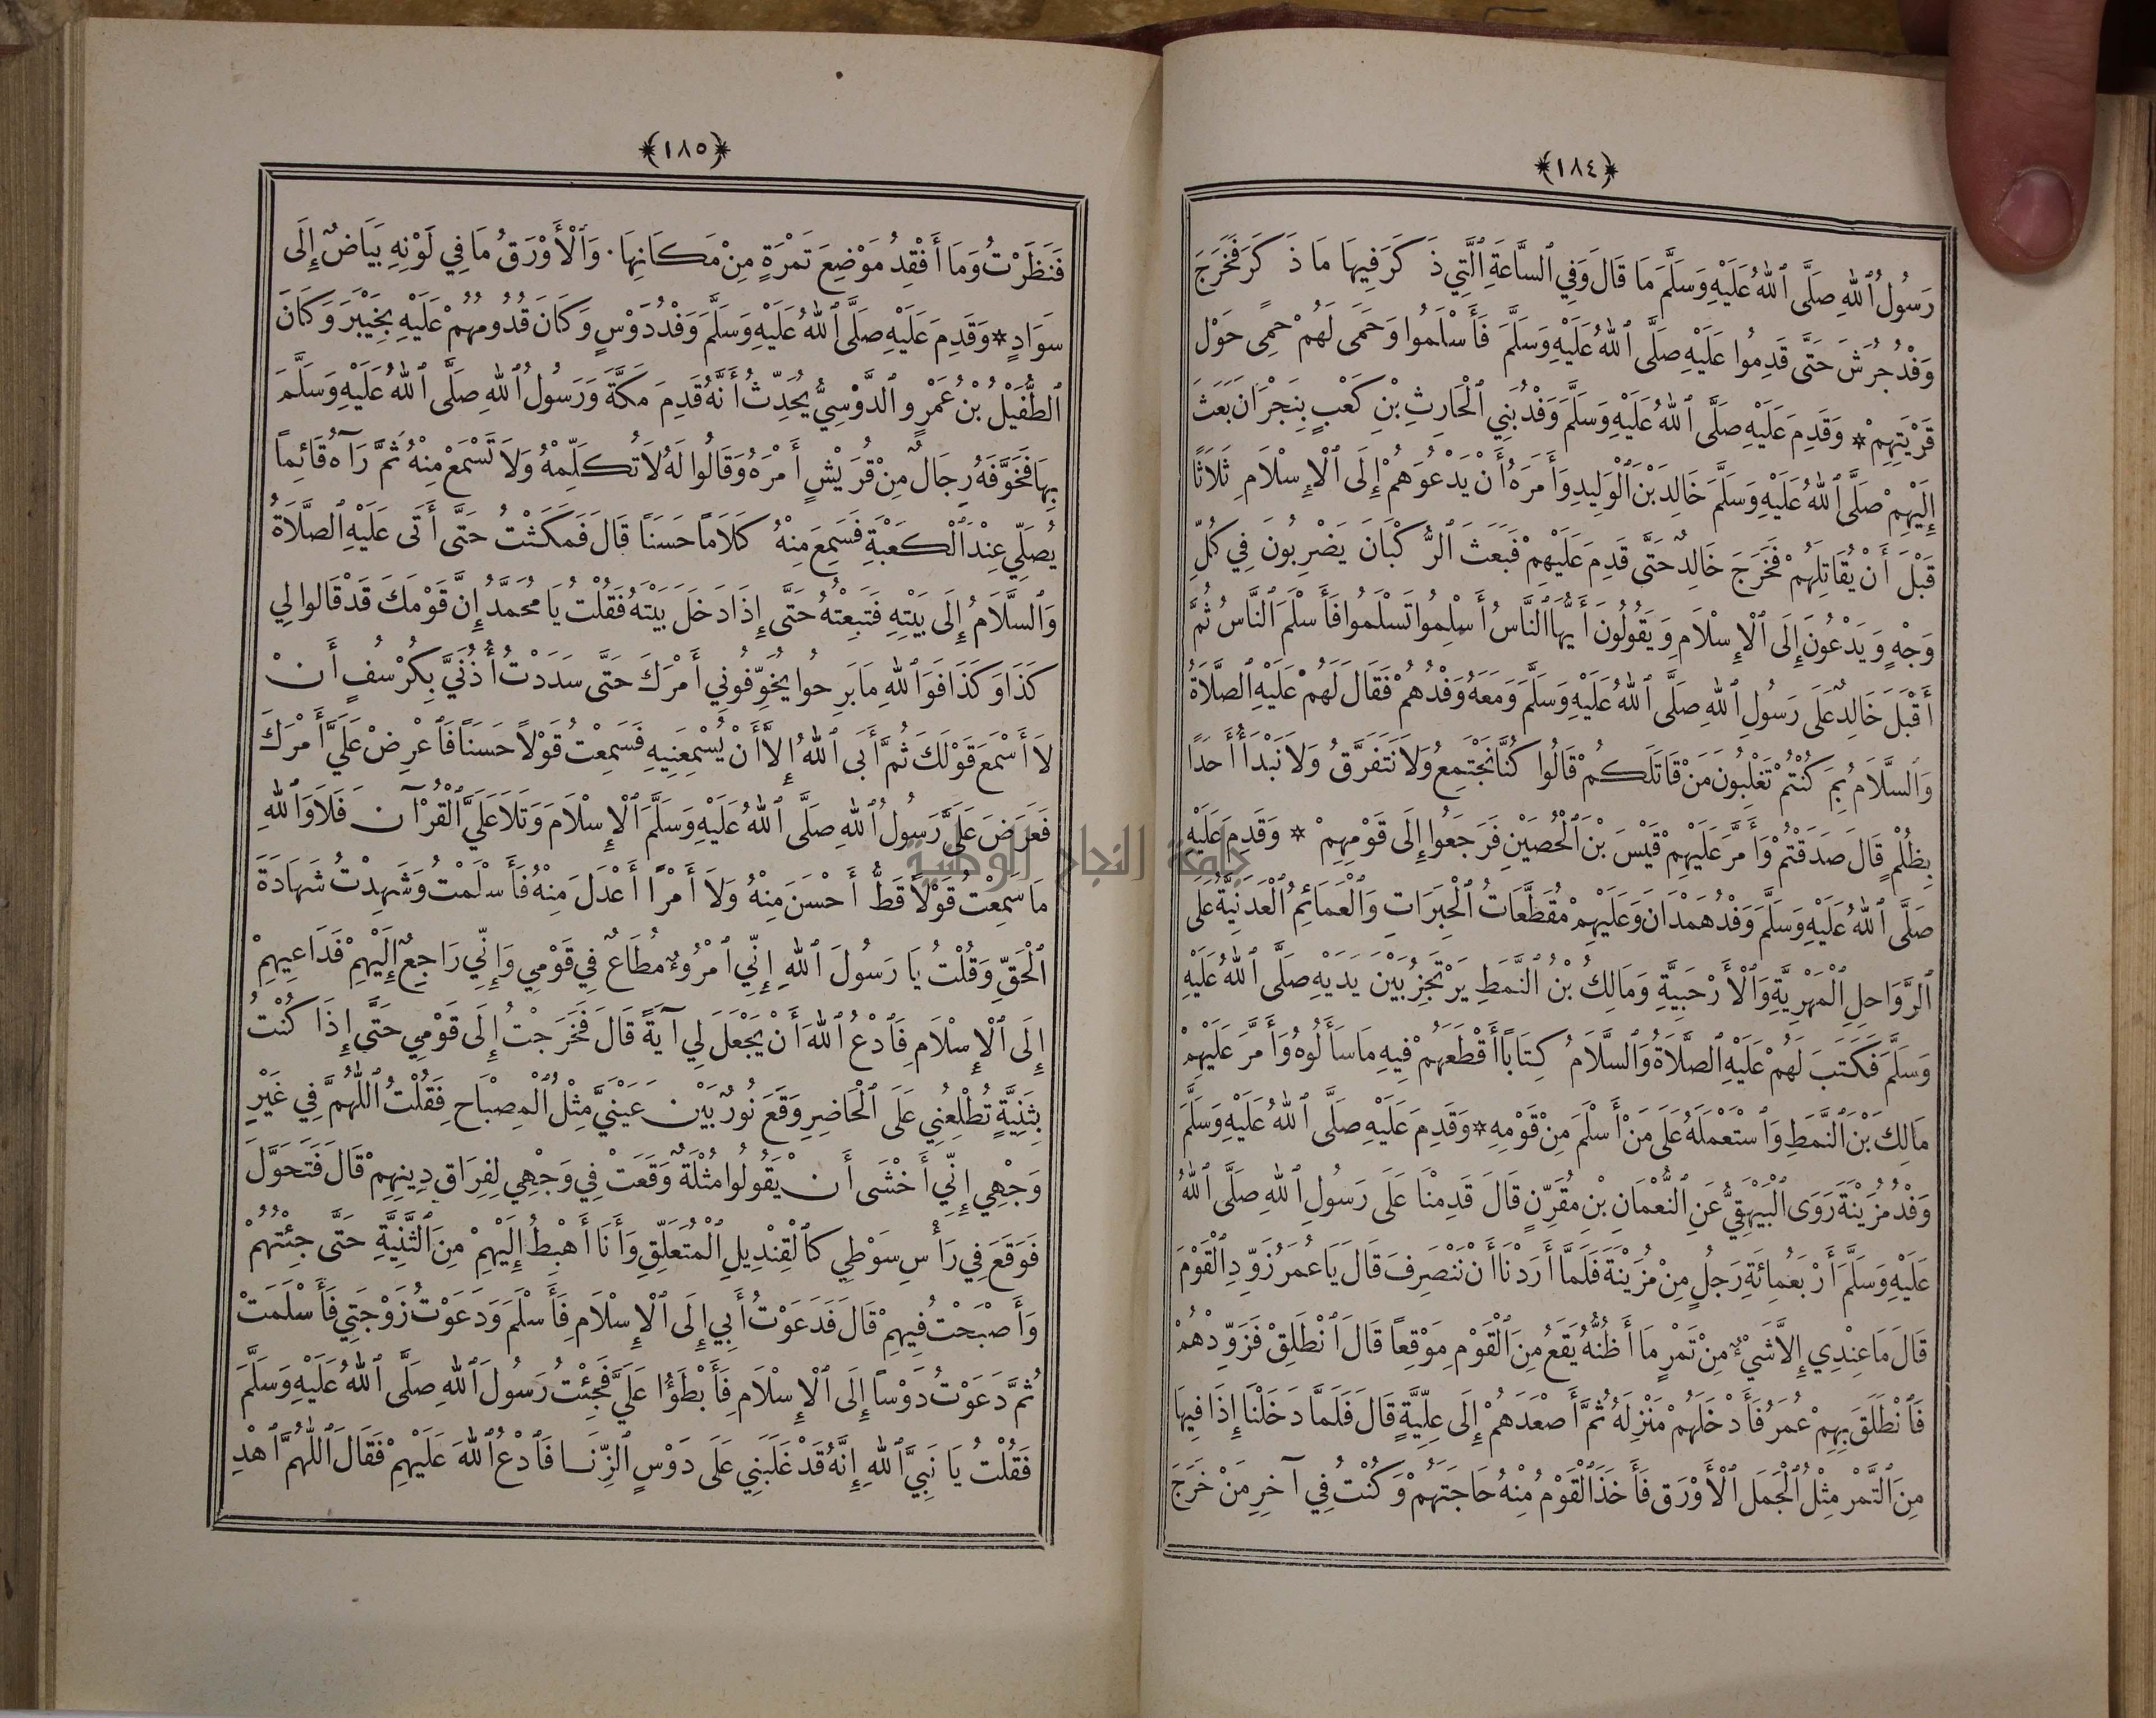 ﴿١٨٤﴾
رَسُولُ ٱللهِ صَلَّى ٱللهُ عَلَيْهِ وَسَلَّمَ مَا قَالَ وَفِي ٱلسَّاعَةِ ٱلَّتِي ذَكَرَ فِيهَا مَا ذَكَرَ فَخَرَجَ
وَفْدُ جُرَشَ حَتَّى قَدِمُوا عَلَيْهِ صَلَّى ٱللهُ عَلَيْهِ وَسَلَّمَ فَأَسْلَمُوا وَحَمَى لَهُمْ حِمىً حَوْلَ
قَرْيَتِهِمْ * وَقَدِمَ عَلَيْهِ صَلَّى ٱللهُ عَلَيْهِ وَسَلَّمَ وَفْدُ بَنِي ٱلْحَارِثِ بْنِ كَعْبٍ بِنَجْرَانَ بَعَثَ
إِلَيْهِمْ صَلَّى ٱللهُ عَلَيْهِ وَسَلَّمَ خَالِدَ بْنَ ٱلْوَلِيدِ وَأَمَرَهُ أَنْ يَدْعُوَهُمْ إِلَى ٱلْإِسْلَامِ ثَلَاثًا
قَبْلَ أَنْ يُقَاتِلَهُمْ فَخَرَجَ خَالِدٌ حَتَّى قَدِمَ عَلَيْهِمْ فَبَعَثَ ٱلرُّكْبَانَ يَضْرِبُونَ فِي كُلِّ
وَجْهٍ وَيَدْعُونَ إِلَى ٱلْإِسْلَامِ وَيَقُولُونَ أَيُّهَا ٱلنَّاسُ أَسْلِمُوا تَسْلَمُوا فَأَسْلَمَ ٱلنَّاسُ ثُمَّ
أَقْبَلَ خَالِدٌ عَلَى رَسُولِ ٱللهِ صَلَّى ٱللهُ عَلَيْهِ وَسَلَّمَ وَمَعَهُ وَفْدُهُمْ فَقَالَ لَهُمْ عَلَيْهِ ٱلصَّلَاةُ
وَٱلسَّلَامُ بِمَ كُنْتُمْ تَغْلِبُونَ مَنْ قَاتَلَكُمْ قَالُوا كُنَّا نَجْتَمِعُ وَلَا نَتَفَرَّقُ وَلَا نَبْدَأُ أَحَدًا
بِظُلْمٍ قَالَ صَدَقْتُمْ وَأَمَّرَ عَلَيْهِمْ قَيْسَ بْنَ ٱلْحُصَيْنِ فَرَجَعُوا إِلَى قَوْمِهِمْ * وَقَدِمَ عَلَيْهِ
صَلَّى ٱللهُ عَلَيْهِ وَسَلَّمَ وَفْدُ هَمْدَانَ وَعَلَيْهِمْ مُقَطَّعَاتُ ٱلْحِبَرَاتِ وَٱلْعَمَائِمُ ٱلْعَدَنِيَّةُ عَلَى
ٱلرَّوَاحِلِ ٱلْمَهْرِيَّةِ وَٱلْأَرْحَبِيَّةِ وَمَالِكُ بْنُ ٱلنَّمَطِ يَرْتَجِزُ بَيْنَ يَدَيْهِ صَلَّى ٱللهُ عَلَيْهِ
وَسَلَّمَ فَكَتَبَ لَهُمْ عَلَيْهِ ٱلصَّلَاةُ وَٱلسَّلَامُ كِتَابًا أَقْطَعَهُمْ فِيهِ مَا سَأَلُوهُ وَأَمَّرَ عَلَيْهِمْ
مَالِكَ بْنَ ٱلنَّمَطِ وَٱسْتَعْمَلَهُ عَلَى مَنْ أَسْلَمَ مِنْ قَوْمِهِ * وَقَدِمَ عَلَيْهِ صَلَّى ٱللهُ عَلَيْهِ وَسَلَّمَ
وَفْدُ مُزَيْنَةَ رَوَى ٱلْبَيْهَقِيُّ عَنِ ٱلنُّعْمَانِ بْنِ مُقَرِّنٍ قَالَ قَدِمْنَا عَلَى رَسُولِ ٱللهِ صَلَّى ٱللهُ
عَلَيْهِ وَسَلَّمَ أَرْبَعُمِائَةِ رَجُلٍ مِنْ مُزَيْنَةَ فَلَمَّا أَرَدْنَا أَنْ نَنْصَرِفَ قَالَ يَا عُمَرُ زَوِّدِ ٱلْقَوْمَ
قَالَ مَا عِنْدِي إِلَّا شَيْءٌ مِنْ تَمْرٍ مَا أَظُنُّهُ يَقَعُ مِنَ ٱلْقَوْمِ مَوْقِعاً قَالَ ٱنْطَلِقْ فَزَوِّدْهُمْ
فَٱنْطَلَقَ بِهِمْ عُمَرُ فَأَدْخَلَهُمْ مَنْزِلَهُ ثُمَّ أَصْعَدَهُمْ إِلَى عِلِّيَّةٍ قَالَ فَلَمَّا دَخَلْنَا إِذَا فِيهَا
مِنَ ٱلتَّمْرِ مِثْلُ ٱلْجَمَلِ ٱلْأَوْرَقِ فَأَخَذَ ٱلْقَوْمُ مِنْهُ حَاجَتَهُمْ وَكُنْتُ فِي آخِرِ مَنْ خَرَجَ
﴿١٨٥﴾
فَنَظَرْتُ وَمَا أَفْقِدُ مَوْضِعَ تَمْرَةٍ مِنْ مَكَانِهَا. وَٱلْأَوْرَقُ مَا فِي لَوْنِهِ بَيَاضٌ إِلَى
سَوَادٍ * وَقَدِمَ عَلَيْهِ صَلَّى ٱللهُ عَلَيْهِ وَسَلَّمَ وَفْدُ دَوْسٍ وَكَانَ قُدُومُهُمْ عَلَيْهِ بِخَيْبَرَ وَكَانَ
ٱلطُّفَيْلُ بْنُ عَمْرٍو ٱلدَّوْسِيُّ يُحَدِّثُ أَنَّهُ قَدِمَ مَكَّةَ وَرَسُولُ ٱللهِ صَلَّى ٱللهُ عَلَيْهِ وَسَلَّمَ
بِهَا فَخَوَّفَهُ رِجَالٌ مِنْ قُرَيْشٍ أَمْرَهُ وَقَالُوا لَهُ لَا تُكَلِّمْهُ وَلَا تَسْمَعْ مِنْهُ ثُمَّ رَآهُ قَائِماً
يُصَلِّي عِنْدَ ٱلْكَعْبَةِ فَسَمِعَ مِنْهُ كَلَاماً حَسَنَاً قَالَ فَمَكَثْتُ حَتَّى أَتَى عَلَيْهِ ٱلصَّلَاةُ
وَٱلسَّلَامُ إِلَى بَيْتِهِ فَتَبِعْتُهُ حَتَّى إِذَا دَخَلَ بَيْتَهُ فَقُلْتُ يَا مُحَمَّدُ إِنَّ قَوْمَكَ قَدْ قَالُوا لِي
كَذَا وَكَذَا فَوَٱللهِ مَا بَرِحُوا يُخَوِّفُونِي أَمْرَكَ حَتَّى سَدَدْتُ أُذُنَيَّ بِكُرْسُفٍ أَنْ
لَا أَسْمَعَ قَوْلَكَ ثُمَّ أَبَى ٱللهُ إِلَّا أَنْ يُسْمِعَنِيهِ فَسَمِعْتُ قَوْلاً حَسَنَاً فَٱعْرِضْ عَلَيَّ أَمْرَكَ
فَعَرَضَ عَلَيَّ رَسُولُ ٱللهِ صَلَّى ٱللهُ عَلَيْهِ وَسَلَّمَ ٱلْإِسْلَامَ وَتَلَا عَلَيَّ ٱلْقُرْآنَ فَلَا وَٱللهِ
مَا سَمِعْتُ قَوْلاً قَطُّ أَحْسَنَ مِنْهُ وَلَا أَمْرًا أَعْدَلَ مِنْهُ فَأَسْلَمْتُ وَشَهِدْتُ شَهَادَةَ
ٱلْحَقِّ وَقُلْتُ يَا رَسُولَ ٱللهِ إِنِّي ٱمْرُوءٌ مُطَاعٌ فِي قَوْمِي وَإِنِّي رَاجِعٌ إِلَيْهِمْ فَدَاعِيهِمْ
إِلَى ٱلْإِسْلَامِ فَٱدْعُ ٱللهَ أَنْ يَجْعَلَ لِي آيَةً قَالَ فَخَرَجْتُ إِلَى قَوْمِي حَتَّى إِذَا كُنْتُ
بِثَنِيَّةٍ تُطْلِعُنِي عَلَى ٱلْحَاضِرِ وَقَعَ نُورٌ بَيْنَ عَيْنَيَّ مِثْلُ ٱلْمِصْبَاحِ فَقُلْتُ ٱللَّهُمَّ فِي غَيْرِ
وَجْهِي إِنِّي أَخْشَى أَنْ يَقُولُوا مُثْلَةٌ وَقَعَتْ فِي وَجْهِي لِفِرَاقِ دِينِهِمْ قَالَ فَتَحَوَّلَ
فَوَقَعَ فِي رَأْسِ سَوْطِي كَٱلْقِنْدِيلِ ٱلْمُتَعَلِّقِ وَأَنَا أَهْبِطُ إِلَيْهِمْ مِنَ ٱلثَّنِيَّةِ حَتَّى جِئْتُهُمْ
وَأَصْبَحْتُ فِيهِمْ قَالَ فَدَعَوْتُ أَبِي إِلَى ٱلْإِسْلَامِ فَأَسْلَمَ وَدَعَوْتُ زَوْجَتِي فَأَسْلَمَتْ
ثُمَّ دَعَوْتُ دَوْساً إِلَى ٱلْإِسْلَامِ فَأَبْطَؤُا عَلَيَّ فَجِئْتُ رَسُولَ ٱللهِ صَلَّى ٱللهُ عَلَيْهِ وَسَلَّمَ
فَقُلْتُ يَا نَبِيَّ ٱللهِ إِنَّهُ قَدْ غَلَبَنِي عَلَى دَوْسٍ ٱلزِّنَا فَٱدْعُ ٱللهَ عَلَيْهِمْ فَقَالَ ٱللَّهُمَّ ٱهْدِ
جامعة النجاح الوطنية